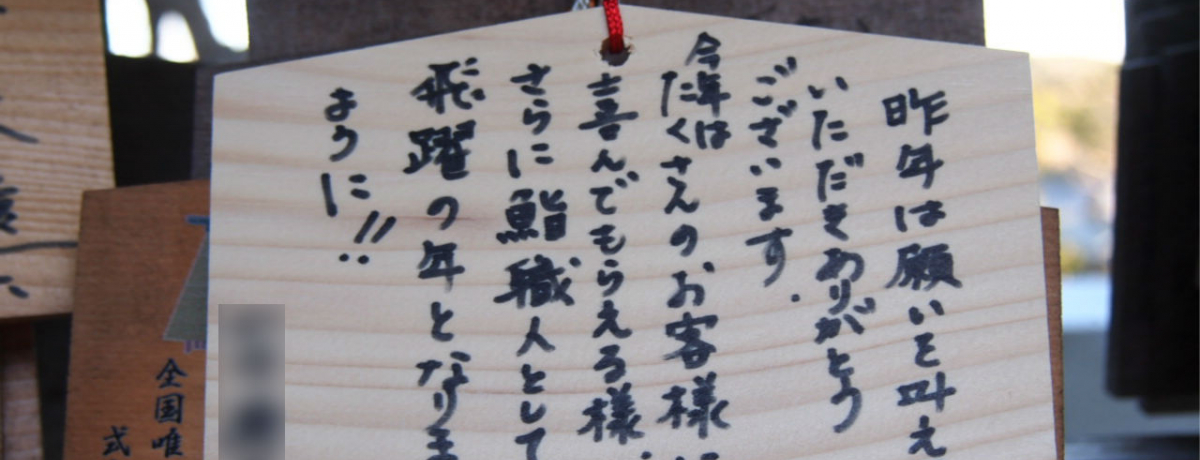 昨年は願いを叶え
いただきありがとう
ございます.
今年は
たくさんのお客様に
喜んでもらえる様.
さらに鮨職人として
飛躍の年となりま
ように!!
全国唯
式